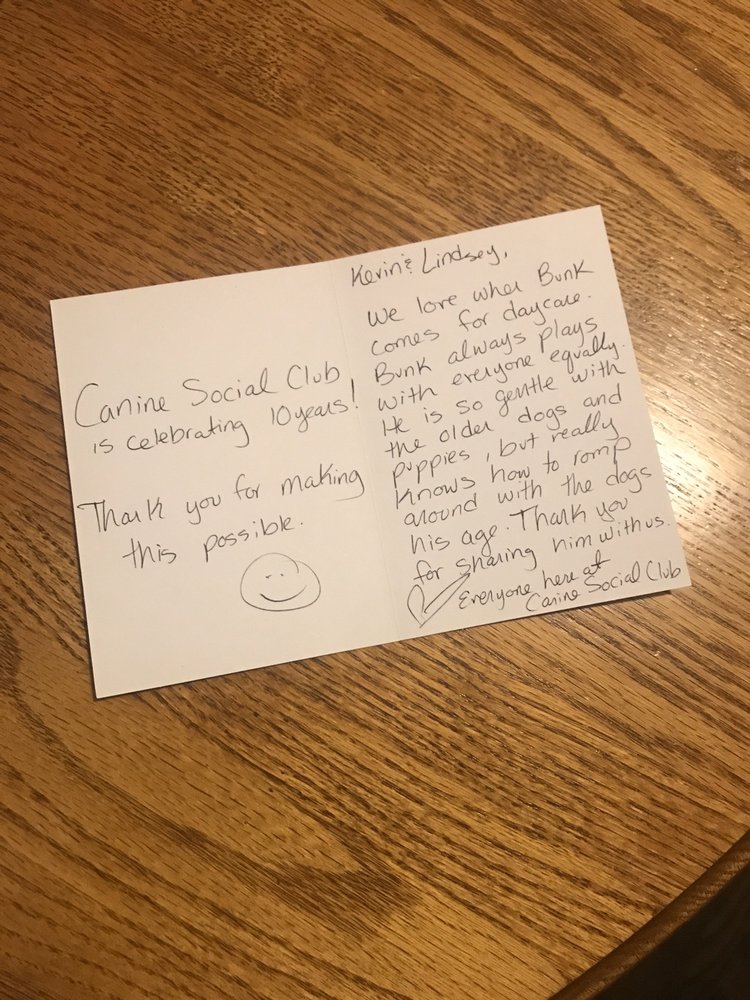 Canine Social Club
is celebrating 10 years!
Thank you for making
this possible.
Kevin & Lindsey,
We love when Bunk
comes for daycare.
Bunk always plays
with everyone equally.
He is so gentle with
the older dogs and
puppies, but really
knows how to romp
around with the dogs
his age. Thank you
for sharing him with us.
Everyone here at
Canine Social Club